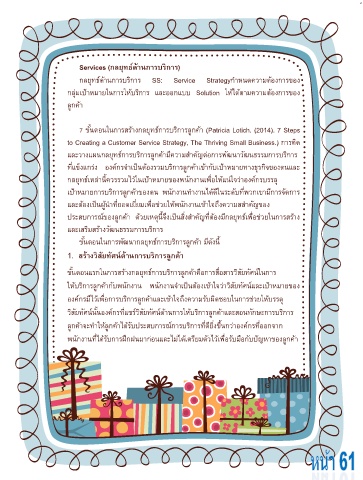 Services (กลยุทธ์ด้านการบริการ)
กลยุทธ์ด้านการบริการ SS: Service Strategyกำหนดความต้องการของ
กลุ่มเป้าหมายในการให้บริการ และออกแบบ Solution ให้ได้ตามความต้องการของ
ลูกค้า
7 ขั้นตอนในการสร้างกลยุทธ์การบริการลูกค้า (Patricia Lotich. (2014). 7 Steps
to Creating a Customer Service Strategy, The Thriving Small Business.) การคิด
และวางแผนกลยุทธ์การบริการลูกค้ามีความสำคัญต่อการพัฒนาวัฒนธรรมการบริการ
ที่แข็งแกร่ง องค์กรจำเป็นต้องรวมบริการลูกค้าเข้ากับเป้าหมายทางธุรกิจของตนและ
กลยุทธ์เหล่านี้ควรรวมไว้ในเป้าหมายของพนักงานเพื่อให้แน่ใจว่าองค์กรบรรลุ
เป้าหมายการบริการลูกค้าของตน พนักงานทำงานให้ดีในระดับที่พวกเขามีการจัดการ
และต้องเป็นผู้นำที่ยอดเยี่ยมเพื่อช่วยให้พนักงานเข้าใจถึงความสำคัญของ
ประสบการณ์ของลูกค้า ด้วยเหตุนี้จึงเป็นสิ่งสำคัญที่ต้องมีกลยุทธ์เพื่อช่วยในการสร้าง
และเสริมสร้างวัฒนธรรมการบริการ
ขั้นตอนในการพัฒนากลยุทธ์การบริการลูกค้า มีดังนี้
1. สร้างวิสัยทัศน์ด้านการบริการลูกค้า
ขั้นตอนแรกในการสร้างกลยุทธ์การบริการลูกค้าคือการสื่อสารวิสัยทัศน์ในการ
ให้บริการลูกค้ากับพนักงาน พนักงานจำเป็นต้องเข้าใจว่าวิสัยทัศน์และเป้าหมายของ
องค์กรมีไว้เพื่อการบริการลูกค้าและเข้าใจถึงความรับผิดชอบในการช่วยให้บรรลุ
วิสัยทัศน์นั้นองค์กรที่แชร์วิสัยทัศน์ด้านการให้บริการลูกค้าและสอนทักษะการบริการ
ลูกค้าจะทำให้ลูกค้าได้รับประสบการณ์การบริการที่ดียิ่งขึ้นกว่าองค์กรที่ออกจาก
พนักงานที่ได้รับการฝึกฝนมาก่อนและไม่ได้เตรียมตัวไว้เพื่อรับมือกับปัญหาของลูกค้า
หน้า 61